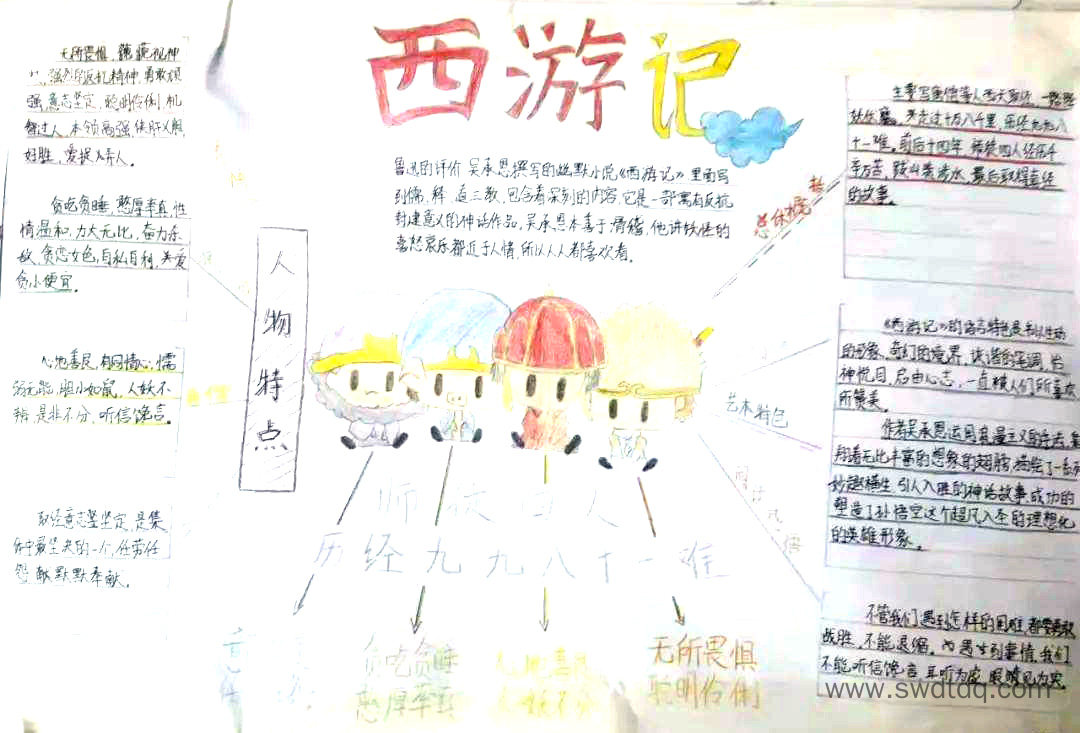 西游记
鲁迅的评价 吴承恩撰写的幽默小说《西游记》里面写
到儒、释、道三教,包含着深刻的内容,它是一部寓有反抗
封建意义的神话作品。吴承恩本善于滑稽,他讲妖怪的
喜怒哀乐都近于人情,所以人人都喜欢看。
无所畏惧,藐视神
强烈的反抗精神,勇敢顽
强,意志坚定,聪明伶俐,机
智过人,本领高强,侠肝义胆,
好胜,爱捉弄人。
贪吃贪睡,憨厚率真,性
情温和,力大无比,奋力杀
敌,贪恋女色,自私自利,关爱
贪小便宜。
心地善良,有同情心,懦
弱无能,胆小如鼠,人妖不
辨,是非不分,听信谗言。
取经意志坚定,是集
体中最坚决的一个,任劳任
怨,默默奉献。
人物特点
总体概括
主要写唐僧等人西天取经,一路降
妖伏魔。共走过十万八千里,历经九九八
十一难。前后十四年,师徒四人经历千
辛万苦,跋山涉水,最后取得真经
的故事。
艺术特色
《西游记》的语言特色是利用生动
的形象、奇幻的境界、诙谐的笔调,怡
神悦目,启由心志,一直被人们所喜欢
所赞美。
作者吴承恩运用浪漫主义的手法,
翔着无比丰富的想象的翅膀,描绘了一系列
妙趣横生、引人入胜的神话故事,成功的
塑造了孙悟空这个超凡入圣的理想化
的英雄形象。
不管我们遇到怎样的困难,都要勇敢
战胜,不能退缩。遇到事情,我们
不能听信谗言,耳听为虚,眼见为实。
师徒四人
历经九九八十一难
贪吃贪睡
憨厚率真
心地善良
人妖不分
无所畏惧
聪明伶俐
www.swdtdq.com